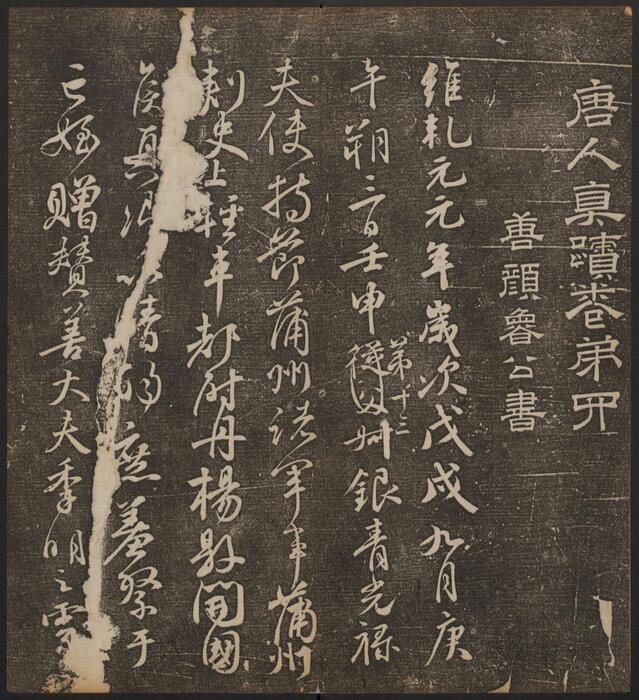 唐人真蹟卷弟四
善顔魯公書
維乹元元年歲次戊戌九月庚
午朔三日壬申第十三從父叔銀青光禄
夫使持節蒲州諸軍事蒲州
刾史上輕車都尉丹楊縣開國
侯真卿以清酌庶羞祭于
亡姪贈贊善大夫季明之靈